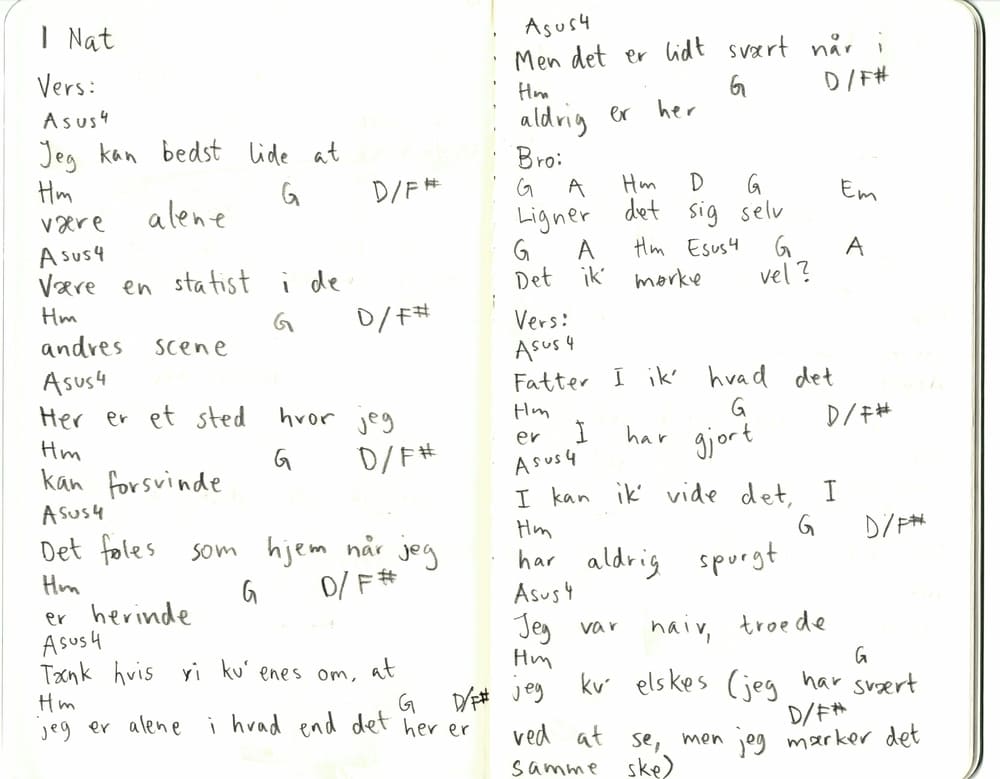 I Nat
Vers:
Asus4
Jeg kan bedst lide at
Hm G D/F#
være alene
Asus4
Være en statist i de
Hm G D/F#
andres scene
Asus4
Her er et sted hvor jeg
Hm G D/F#
kan forsvinde
Asus4
Det føles som hjem når jeg
Hm G D/F#
er herinde
Asus4
Tænk hvis vi ku' enes om, at
Hm G D/F#
jeg er alene i hvad end det her er
Asus4
Men det er lidt svært når i
Hm G D/F#
aldrig er her
Bro:
G A Hm D G Em
Ligner det sig selv
G A Hm Esus4 G A
Det ik' mørke vel?
Vers:
Asus4
Fatter I ik' hvad det
Hm G D/F#
er I har gjort
Asus4
I kan ik' vide det, I
Hm G D/F#
har aldrig spurgt
Asus4
Jeg var naiv, troede
Hm G
jeg ku' elskes (jeg har svært
D/F#
ved at se, men jeg mærker det
samme ske)